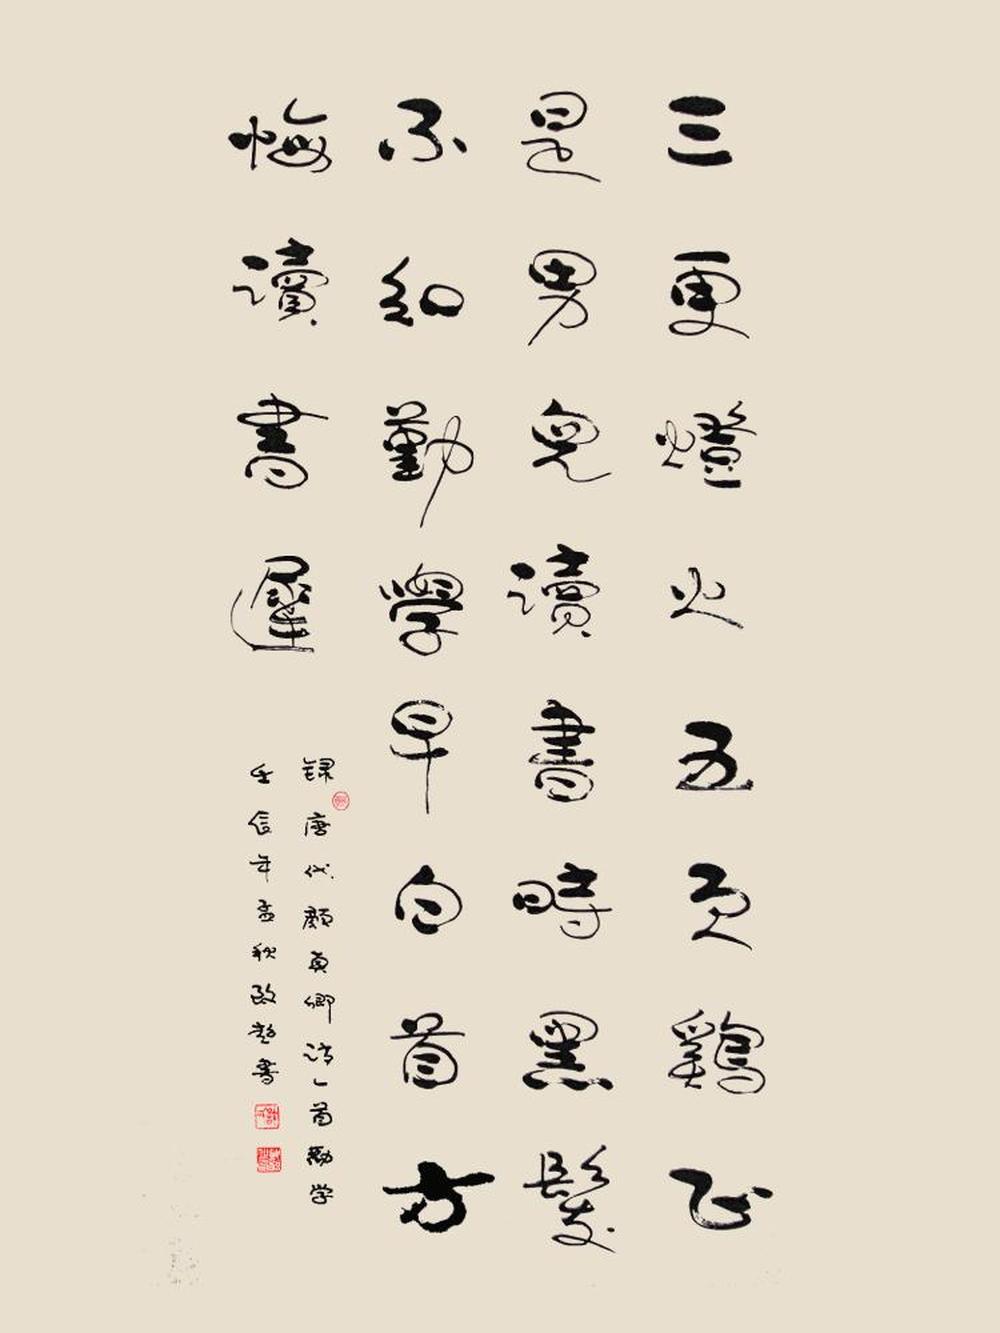 三更燈火五更鷄正
是男兒讀書時黑髮
不知勤學早白首方
悔讀書遲
録唐代顏真卿诗一首勸学
年孟秋書